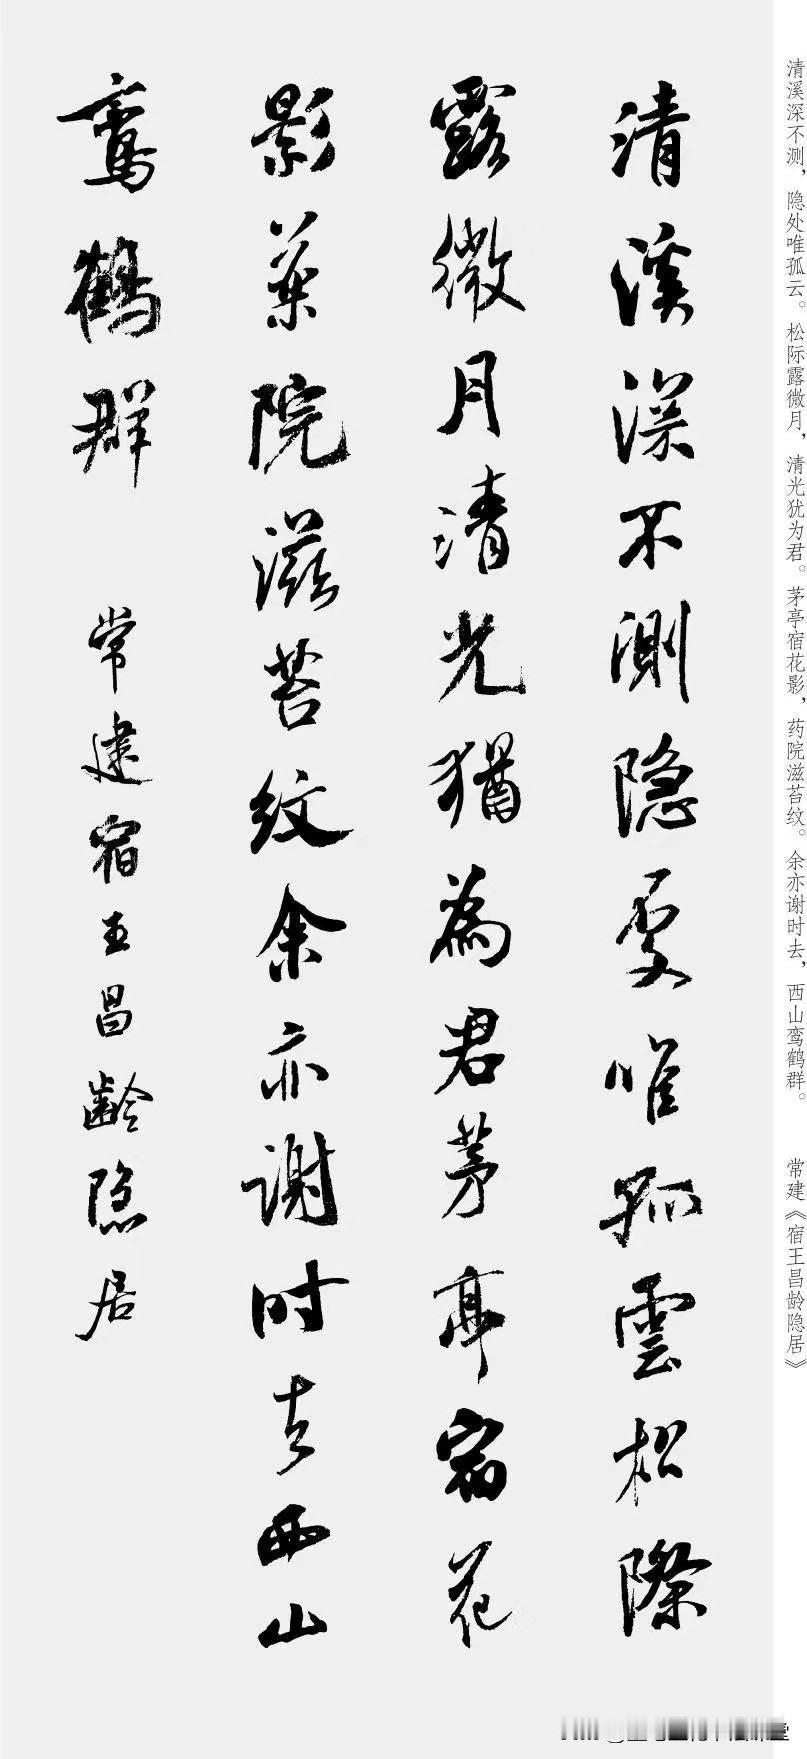 清溪深不测，隐处唯孤云。松际露微月，清光犹为君。茅亭宿花影，药院滋苔纹。余亦谢时去，西山鸾鹤群。 常建《宿王昌龄隐居》
清溪深不測隐處唯孤雲松際
露微月清光猶為君茅亭宿花
影薬院滋苔紋余亦謝时去西山
鸾鶴群 常建宿王昌齡隐居